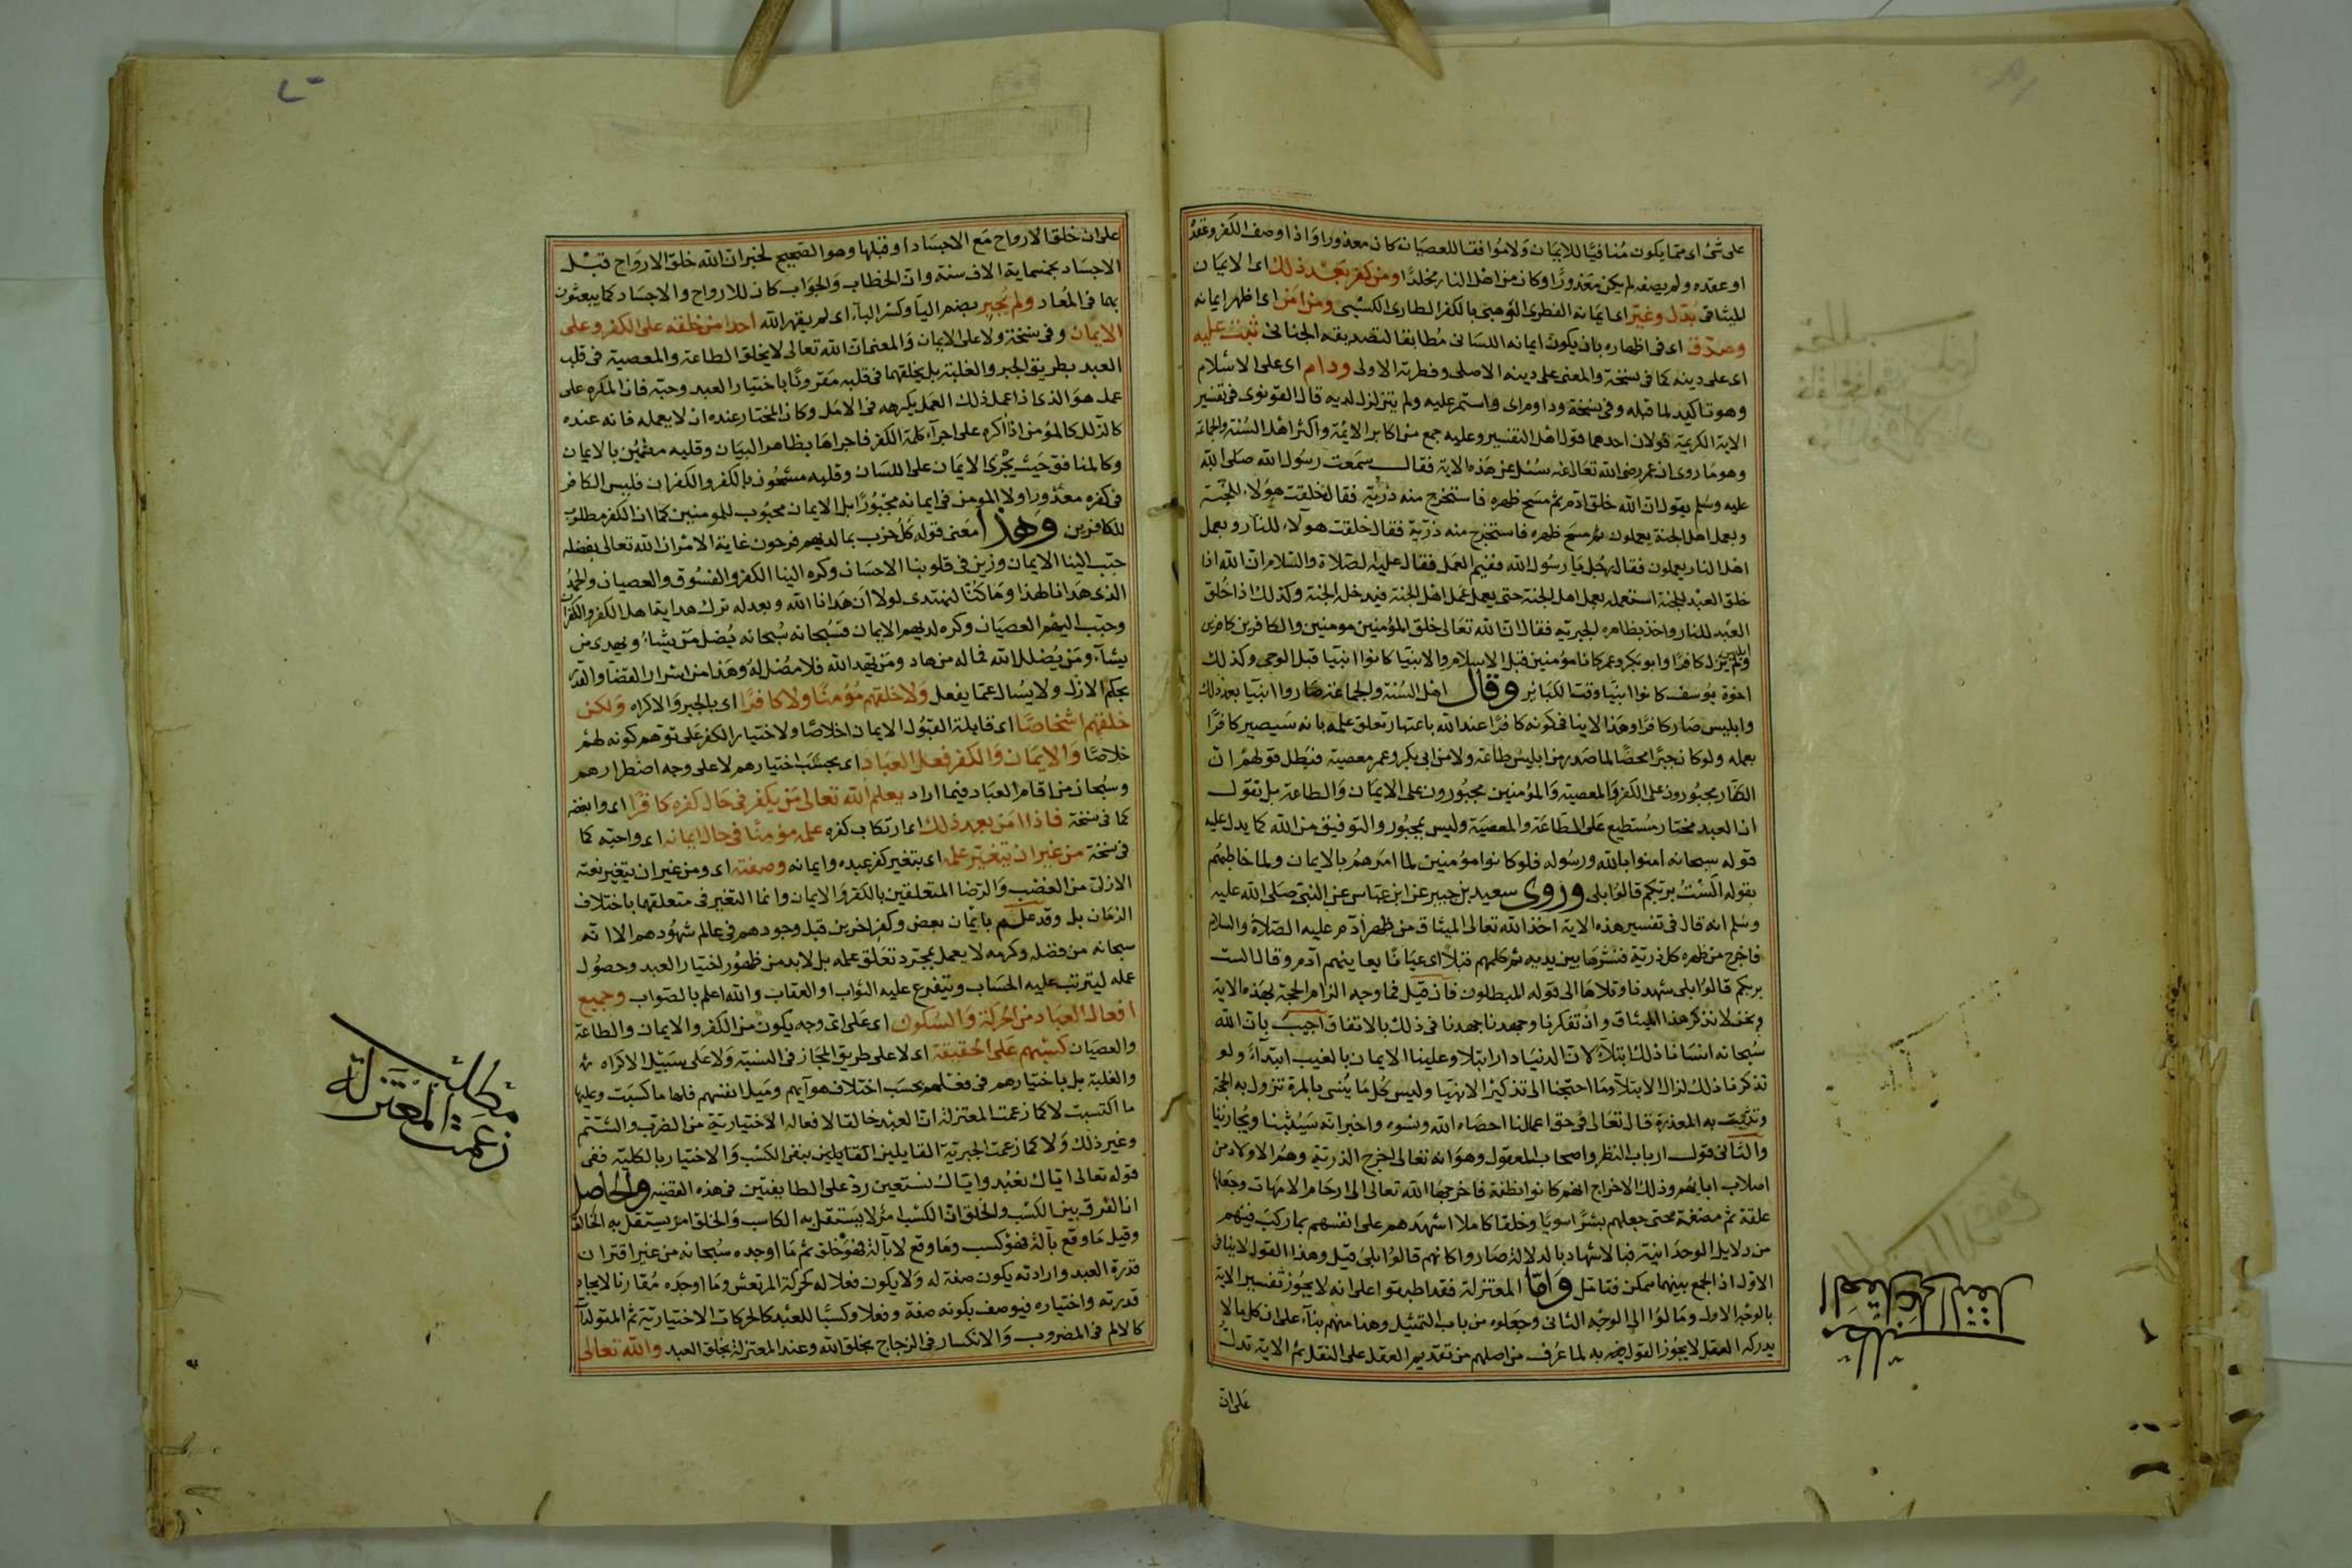 على شئ اى مما يكون منافيا للايمان ولا موافقا للعصيان كان معذورا واذا وصف الكفر وعقد
او عقده ولم يصفه لم يكن معذورا وكان من اهل النار مخلدا ومن كفر بعد ذلك اى الايمان
الميثاقى بدل وغير اى ايمانه الفطرى الوهبى بالكفر الطارى الكسبى ومن امن اى اظهر ايمانه
وصدق اى فى اظهاره بان يكون ايمانه اللسانى مطابقا لتصديقه الجنانى ثبت عليه
اى على دينه كما فى نسخة والمعنى على دينه الاصلى وفطرته الاولى ودام اى على الاسلام
وهو تاكيد لما قبله وفى نسخة وداوم اى واستمر عليه ولم يتزلزل لديه قال القونوى فى تفسير
الاية الكريمة قولان احدهما قول اهل التفسير وعليه جمع من اكابر الايمة واكثر اهل السنة والجماعة
وهو ما روى ان عمر رضى الله تعالى عنه سئل عن هذه الاية فقال سمعت رسول الله صلى الله
عليه وسلم يقول ان الله خلق ادم ثم مسح ظهره فاستخرج منه ذرية فقال خلقت هؤلاء للجنة
وبعمل اهل الجنة يعملون ثم مسح ظهره فاستخرج منه ذرية فقال خلقت هولآء للنار وبعمل
اهل النار يعملون فقال رجل يا رسول الله ففيم العمل فقال عليه الصلاة والسلام ان الله اذا
خلق العبد للجنة استعمله بعمل اهل الجنة حتى يعمل عمل اهل الجنة فيدخل الجنة وكذلك اذا خلق
العبد للنار واخذ بظاهره الجبرية فقال ان الله تعالى خلق المؤمنين مومنين والكافرين كافرين
وابليس لم يزل كافرا وابو بكر وعمر كانا مؤمنين قبل الاسلام والانبيا كانوا انبيا قبل الوحى وكذلك
اخوة يوسف كانوا انبيا وقت الكبائر وقال اهل السنة والجماعة صاروا انبيا بعد ذلك
وابليس صار كافرا وهذا لا ينافى كونه كافرا عند الله باعتبار تعلق علمه بانه سيصير كافرا
بعمله ولو كان جبرا محضا لما صدر من ابليس طاعة ولا من ابى بكر وعمر معصية فبطل قولهم ان
الكفار مجبورون على الكفر والمعصية والمؤمنين مجبورون على الايمان والطاعة بل نقول
ان العبد مختار مستطيع على الطاعة والمعصية وليس بمجبور والتوفيق من الله كما يدل عليه
قوله سبحانه امنوا بالله ورسوله فلو كانوا مؤمنين لما امرهم بالايمان ولما خاطبهم
بقوله الست بربكم قالوا بلى وروى سعيد بن جبير عن ابن عباس عن النبى صلى الله عليه
وسلم انه قال فى تفسير هذه الاية اخذ الله تعالى الميثاق من ظهر ادم عليه الصلاة والسلام
فاخرج من ظهره كل ذرية فنشرها بين يديه ثم كلمهم قبلا اى عيانا يعاينهم آدم وقال الست
بربكم قالوا بلى شهدنا وتلاها الى قوله المبطلون فان قيل فما وجه الزام الحجة بهذه الاية
ونحن لا نذكر هذا الميثاق وان تفكرنا وجهدنا جهدنا فى ذلك بالاتفاق اجيب بان الله
سبحانه انسانا ذلك ابتلآء لان الدنيا دار ابتلا وعلينا الايمان بالغيب ابتداء ولو
تذكرنا ذلك لزال الابتلآ وما احتجنا الى تذكير الانبيا وليس كل ما ينسى بالمرة تزول به الحجة
وتثبت به المعذرة قال تعالى فى حق اعمالنا احصاه الله ونسوه واخبر انه سيثبنا ويجازينا
والثانى قول ارباب النظر واصحاب المعقول وهو انه تعالى اخرج الذرية وهم الاولاد من
اصلاب ابايهم وذلك الاخراج انهم كانوا نطفة فاخرجها الله تعالى الى ارحام الامهات وجعلها
علقة ثم مضغة حتى جعلهم بشرا سويا وخلقا كاملا اشهدهم على انفسهم بما ركب فيهم
من دلايل الوحدانية فبالاشهاد بالدلالة صاروا كانهم قالوا بلى قيل وهذا القول لا ينافى
الاول اذ الجمع بينهما ممكن فتامل واما المعتزلة فقد اطبقوا على انه لا يجوز تفسير الاية
بالوجه الاول ومالوا الى الوجه الثانى وجعلوه من باب التمثيل وهذا منهم بنآء على ان كل ما لا
يدركه العقل لا يجوز القول به لما عرف من اصلهم من تقديم العقل على النقل ثم الاية تدل
على ان
مطلب
العقل على النقل
على ان خلق الارواح مع الاجساد او قبلها وهو الصحيح لخبر ان الله خلق الارواح قبل
الاجساد بخمسماية الاف سنة وان الخطاب والجواب كان للارواح والاجساد كما يبعثون
بهما فى المعاد ولم يجبر بضم اليآ وكسر البآء اى لم يقهر الله احدا من خلقه على الكفر وعلى
الايمان وفى نسخة ولا على الايمان والمعنى ان الله تعالى لا يخلق الطاعة والمعصية فى قلب
العبد بطريق الجبر والغلبة بل يخلقهما فى قلبه مقرونا باختيار العبد وحبه فان المكره على
عمل هو الذى اذا عمل ذلك العمل يكرهه فى الاصل وكان المختار عنده ان لا يعمله فانه عنده
كالذل كالمؤمن اذا اكره على اجرآء كلمة الكفر فاجراها بظاهر البيان وقلبه مطمئن بالايمان
وكالمنافق حيث يجرى الايمان على اللسان وقلبه مشحون بالكفر والكفران فليس الكافر
فى كفره معذورا ولا المومن فى ايمانه مجبورا بل الايمان محبوب للمومنين كما ان الكفر مطلوب
للكافرين وهذا معنى قوله كل حزب بما لديهم فرحون غاية الامر ان الله تعالى بفضله
حبب الينا الايمان وزين فى قلوبنا الاحسان وكره الينا الكفر والفسوق والعصيان والحمد لله
الذى هدانا لهذا وما كنا لنهتدى لولا ان هدانا الله وبعدله ترك هداية اهل الكفر والكفران
وحبب اليهم العصيان وكره لديهم الايمان فسبحانه سبحانه يضل من يشاء ويهدى من
يشآء ومن يضلل الله فما له من هاد ومن يهد الله فلا مضل له وهذا من اسرار القضآ والقدر
بحكم الازل ولا يسال عما يفعل ولا خلقهم مؤمنا ولا كافرا اى بالجبر والاكراه ولكن
خلقهم اشخاصا اى قابلة القبول الايمان اخلاصا ولاختيار الكفر على توهم كونه لهم
خلاصا والايمان والكفر فعل العباد اى بحسب اختيارهم لا على وجه اضطرارهم
وسبحان من اقام العباد فيما اراد يعلم الله تعالى من يكفر فى حال كفره كافرا اى وابغضه
كما فى نسخة فاذا امن بعد ذلك اى ارتكاب كفره علمه مؤمنا فى حال ايمانه اى واحبه كما
فى نسخة من غير ان يتغير علمه اى بتغير كفر عبده وايمانه وصفته اى ومن غير ان يتغير نعته
الازلى من الغضب والرضا المتعلقين بالكفر والايمان وانما التغير فى متعلقهما باختلاف
الزمان بل وقد علم بايمان بعض وكفر اخرين قبل وجودهم فى عالم شهودهم الا انه
سبحانه من فضله وكرمه لا يعمل بمجرد تعلق علمه بل لا بد من ظهور اختيار العبد وحصول
عمله ليترتب عليه الحساب ويتفرع عليه الثواب او العقاب والله اعلم بالصواب وجميع
افعال العباد من الحركة والسكون اى على اى وجه يكون من الكفر والايمان والطاعة
والعصيان كسبهم على الحقيقة اى لا على طريق المجاز فى النسبة ولا على سبيل الاكراه
والغلبة بل باختيارهم فى فعلهم بحسب اختلاف هوآيهم وميل انفسهم فلها ما كسبت وعليها
ما اكتسبت لا كما زعمت المعتزلة ان العبد خالق لافعاله الاختيارية من الضرب والشتم
وغير ذلك ولا كما زعمت الجبرية القايلين بنفى الكسب والاختيار بالكلية ففى
قوله تعالى اياك نعبد واياك نستعين رد على الطايفتين فى هذه القضية والحاصل
ان الفرق بين الكسب والخلق ان الكسب امر لا يستقل به الكاسب والخلق امر يستقل به الخالق
وقيل ما وقع بآلة فهو كسب وما وقع لا بآلة فهو خلق ثم ما اوجده سبحانه من غير اقتران
قدرة العبد وارادته يكون صفة له ولا يكون فعلا له كحركة المرتعش وما اوجده مقارنا لايجاد
قدرته واختياره فيوصف بكونه صفة وفعلا وكسبا للعبد كالحركات الاختيارية ثم المتولدات
كالالم فى المضروب والانكسار فى الزجاج بخلق الله وعند المعتزلة بخلق العبد والله تعالى
مطلب
زعمت المعتزلة